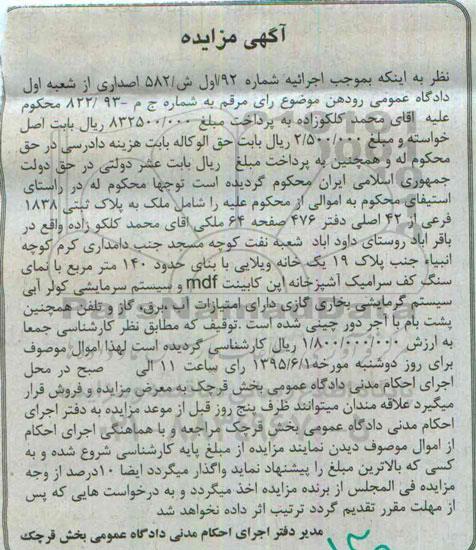 آگهی مزایده
نظر به اینکه بموجب اجرائیه شماره ۹۲/اول ش/۵۸۲ اصداری از شعبه اول
دادگاه عمومی رودهن موضوع رای مرقم به شماره ج م -۹۳ /۸۲۲ محکوم
علیه آقای محمد کلکوزاده به پرداخت مبلغ ۸۳۲۵۰۰/۰۰۰ ریال بابت اصل
خواسته و مبلغ ۲/۵۰۰/۰۰۰ ریال بابت حق الوکاله بابت هزینه دادرسی در حق
محکوم له و همچنین به پرداخت مبلغ ریال بابت عشر دولتی در حق دولت
جمهوری اسلامی ایران محکوم گردیده است توجها محکوم له در راستای
استیفای محکوم به اموالی از محکوم علیه را شامل ملک به پلاک ثبتی ۱۸۳۸
فرعی از ۴۲ اصلی دفتر ۴۷۶ صفحه ۶۴ ملکی آقای محمد کلکو زاده واقع در
باقر آباد روستای داود آباد شعبه نفت کوچه مسجد جنب دامداری کرم کوچه
انبیاء جنب پلاک ۱۹ یک خانه ویلایی با بنای حدود ۱۴۰ متر مربع با نمای
سنگ کف سرامیک آشپزخانه اپن کابینت mdf و سیستم سرمایشی کولر آبی
سیستم گرمایشی بخاری گازی دارای امتیازات آب ،برق، گاز و تلفن همچنین
پشت بام با آجر دور چینی شده است .توقیف که مطابق نظر کارشناسی جمعا
به ارزش ۱/۸۰۰/۰۰۰/۰۰۰ ریال کارشناسی گردیده است لهذا اموال موصوف
برای روز دوشنبه مورخه۱۳۹۵/۶/۱ رای ساعت ۱۱ الی صبح در محل
اجرای احکام مدنی دادگاه عمومی بخش قرچک به معرض مزایده و فروش قرار
میگیرد علاقه مندان میتوانند ظرف پنج روز قبل از موعد مزایده به دفتر اجرای
احکام مدنی دادگاه عمومی بخش قرچک مراجعه و با هماهنگی اجرای احکام
از اموال موصوف دیدن نمایند مزایده از مبلغ پایه کارشناسی شروع شده و به
کسی که بالاترین مبلغ را پیشنهاد نماید واگذار میگردد ایضا ۱۰درصد از وجه
مزایده فی المجلس از برنده مزایده اخذ میگردد و به درخواست هایی که پس
از مهلت مقرر تقدیم گردد ترتیب اثر داده نخواهد شد
مدیر دفتر اجرای احکام مدنی دادگاه عمومی بخش قرچک